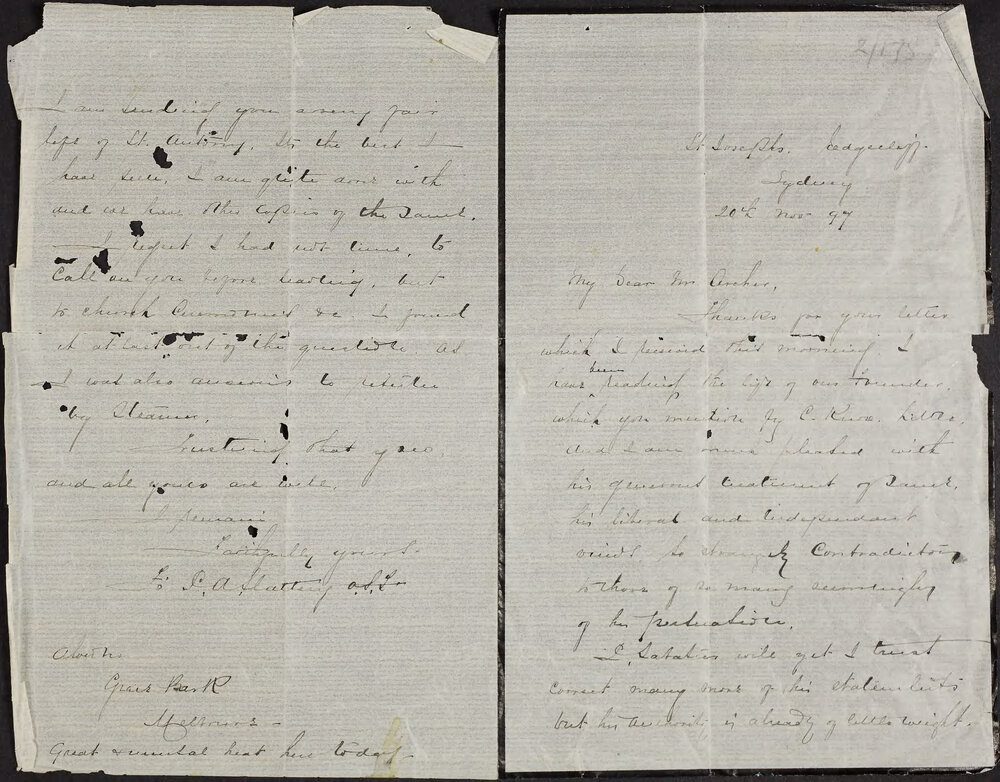 2/173
St Josephs. Edgecliff.
Sydney
20th Nov 97
My Dear Mr Archer,
Thanks for your letter
which I received this morning. I
have been reading the life of our Founder,
which you mention by C. Knox Little,
and I am more pleased with
his generous treatment of same,
his liberal and independent
views so strangely contradictory
to those of so many seemingly
of his persuasion.
P. Sabatier will yet I trust
correct many more of his statements
but his authority is already of little weight.
I am sending you a very fair
life of St. Antony, its the best I
have seen. I am quite done with
and we have other copies of the same.
I regret I had not time to
call on you before leaving, but
to church ceremonies &c. I found
it at last out of the question. as
I was also anxious to return
by Steamer.
Trusting that you,
and all yours are well,
I remain
Faithfully yours
Fr P. A. Slattery o.s.f.
Grace Park
Melbourne
Great & unusual heat here today